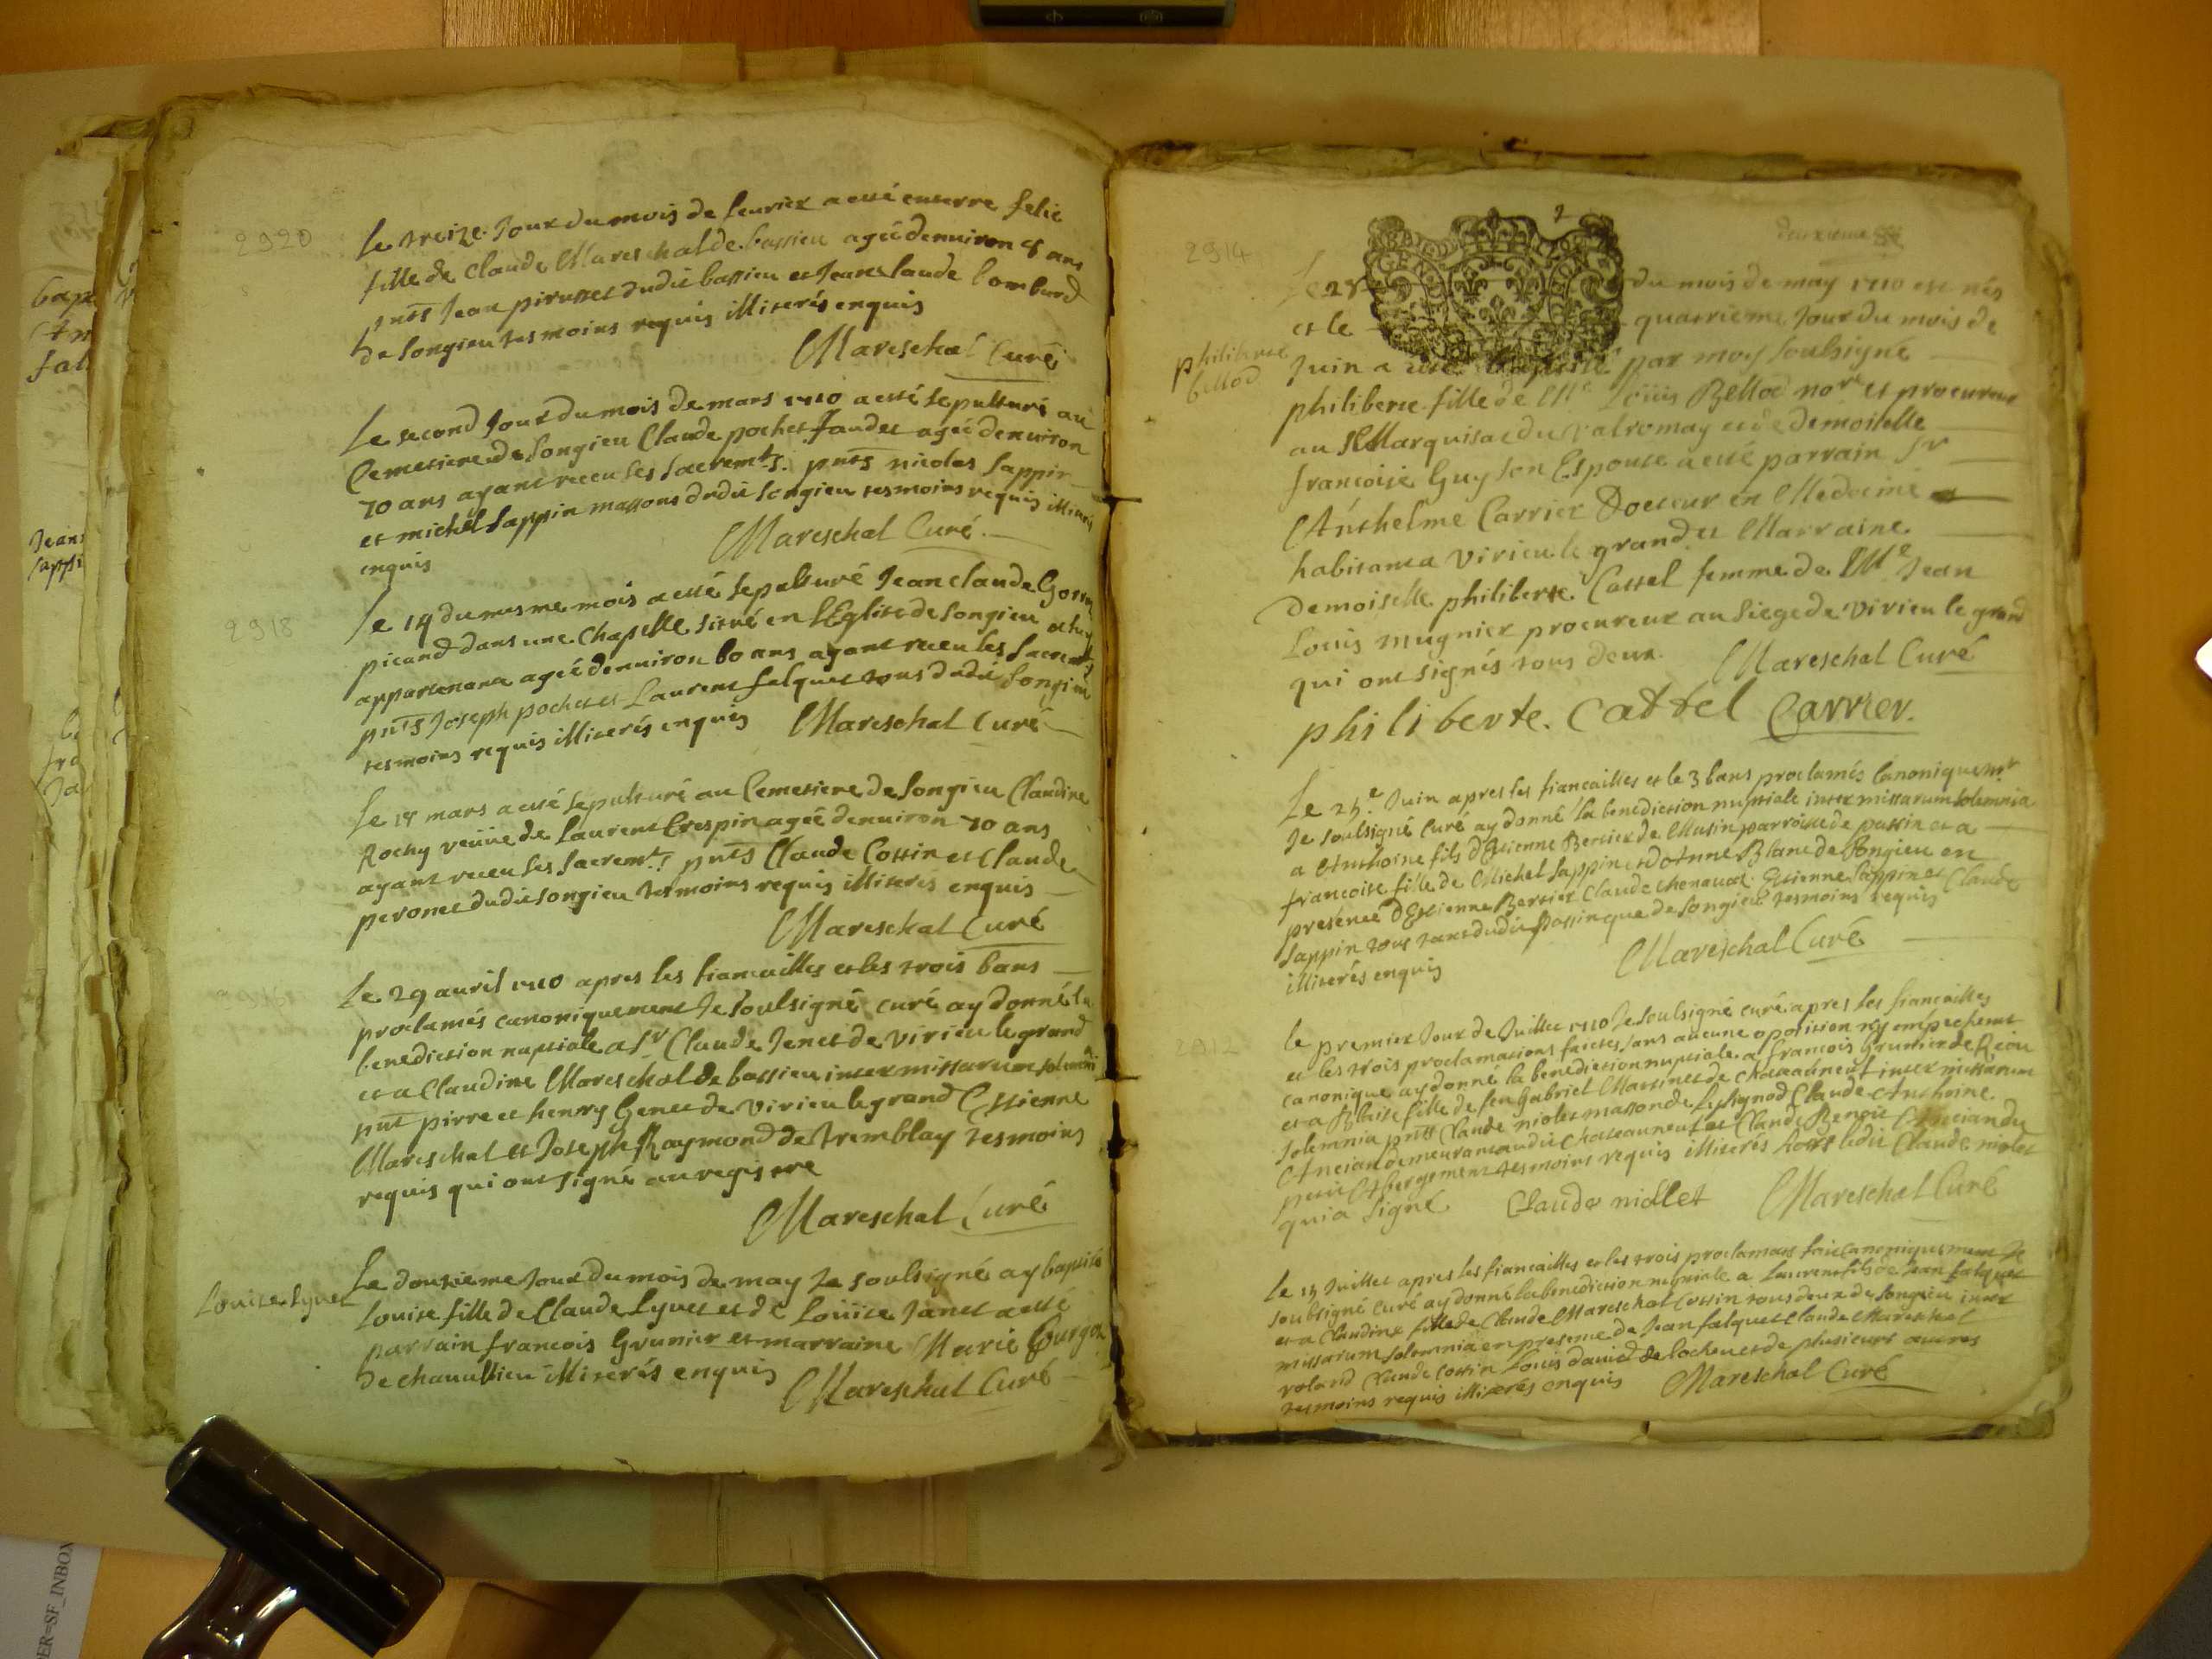 2920
Le treize Jour du mois de feurier a esté enterre felie
fille de Claude Mareschal de bassieu agée denuiron 8 ans
pnts Jean pirusset dudit bassieu et Jean claude lombard
de songieu tesmoins requis illiterés enquis
Mareschal Curé
Le second Jour du mois de mars 1710 a esté sepulturé au
Cemetiere de songieu Claude pochet Jaudet agée denuiron
70 ans ayant receu les sacremts. pnts nicolas sappin
et michel sappin massons dudit songieu tesmoins requis illiterés
enquis
Mareschal Curé
2918
Le 14 du mesme mois a esté sepulturé Jean claude
picand dans une Chapelle situé en lEglise de songieu
appartenant agée denuiron 60 ans ayant receu les sacremts
pnts Joseph pochet et Laurent falquet tous dudit songieu
tesmoins requis illiterés enquis Mareschal Curé
Le 18 mars a esté sepulturé au Cemetiere de songieu Claudine
Rochy veüue de Laurent Crespin agée denuiron 70 ans
ayant receu les sacremts pnts Claude Cottin et Claude
peronet dudit songieu tesmoins requis illiterés enquis
Mareschal Curé
Le 29 auril 1710 apres les fiancailles et les trois bans
proclamés canoniquement Je soulsigné curé ay donné la
benediction nuptiale a sr Claude Jenet de Virieu le grand
et a Claudine Mareschal de bassieu inter missarum solemnia
pnt pirre et henry Genet de Virieu le grand Estienne
Mareschal et Joseph Raymond de tremblay tesmoins
requis qui ont signé au registre
Mareschal Curé
Louise Lyuet
Le douzieme Jour du mois de may Je soulsigné ay baptisé
Louise fille de Claude Lyuet et de Loüise Janet a esté
parrain francois Grunier et marraine Marie
de chauillieu illiterés enquis
Mareschal Curé
2914
2
deuxieme
Le 28 du mois de may 1710 est née
et le quatrieme Jour du mois de
philiberte
bellod
Juin a esté baptisée par moy soulsigné
philiberte fille de Me Loüis Bellod nore et procureur
au Marquisat du valromay et de demoiselle
francoise Guy son Espouse a esté parrain sr
Anthelme Carrier Docteur en Medecine
habitant a Virieu le grand et Marraine
Demoiselle philiberte Cattel femme de Me Jean
Loüis mugnier procureur au siege de Virieu le grand
qui ont signés tous deux. Mareschal Curé
philiberte. Cattel Carrier.
Le 25e Juin apres les fiancailles et le 3 bans proclamés Canoniquemt
Je soulsigné Curé ay donné la benediction nuptiale inter missarum solemnia
a Anthoine fils dEstienne Bertier de Musin parroisse de passin et a
francoise fille de Michel sappin et dAnne Blanc de songieu en
presence dEstienne Bertier Claude Estienne sappin et Claude
sappin tous tant dudit passin que de songieu tesmoins requis
illiterés enquis
Mareschal Curé
Le premier Jour de Juillet 1710 Je soulsigné curé apres les fiancailles
et les trois proclamations faictes sans aucune oposition ny empechement
canonique ay donné la benediction nuptiale a francois Grunier de
et a Blaise fille de feu Gabriel Martinet de chateauneuf inter missarum
solemnia pnts Claude niolet masson de Claude Anthoine
Ancian demeurant audit Chateauneuf et Claude Benoit Ancian du
petit Abergement tesmoins requis illiterés hors ledit Claude niolet
qui a signé Claude niollet Mareschal Curé
Le 15 Juillet apres les fiancailles et les trois proclamaons fait canoniquement Je
soulsigné curé ay donné la benediction nuptiale a Laurent fils de Jean falquet
et a Claudine fille de Claude Mareschal Cottin tous deux de songieu inter
missarum solemnia en presence de Jean falquet Claude Mareschal
roland Claude Cottin Loüis dauid de lochieu et de plusieurs autres
tesmoins requis illiterés enquis Mareschal Curé